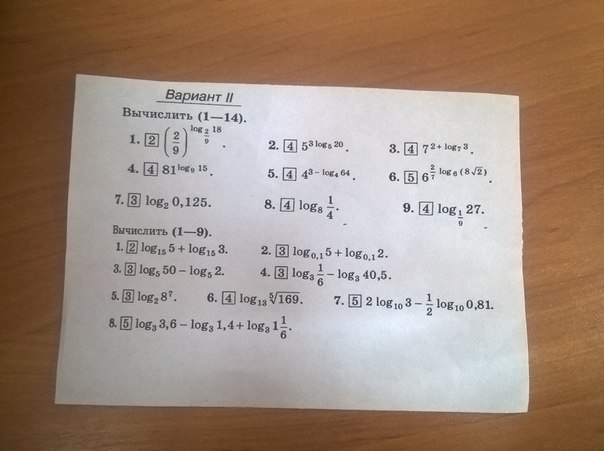 Вариант II
Вычислить (1—14).
1. [2] (2/9)^(log_(2/9) 18). 2. [4] 5^(3 log_5 20). 3. [4] 7^(2 + log_7 3).
4. [4] 81^(log_9 15). 5. [4] 4^(3 − log_4 64). 6. [5] 6^(2/7 log_6 (8√2)).
7. [3] log_2 0,125. 8. [4] log_8 1/4. 9. [4] log_(1/9) 27.
Вычислить (1—9).
1. [2] log_15 5 + log_15 3. 2. [3] log_0,1 5 + log_0,1 2.
3. [3] log_5 50 − log_5 2. 4. [3] log_3 1/6 − log_3 40,5.
5. [3] log_2 8^7. 6. [4] log_13 ⁵√169. 7. [5] 2 log_10 3 − 1/2 log_10 0,81.
8. [5] log_3 3,6 − log_3 1,4 + log_3 1 1/6.